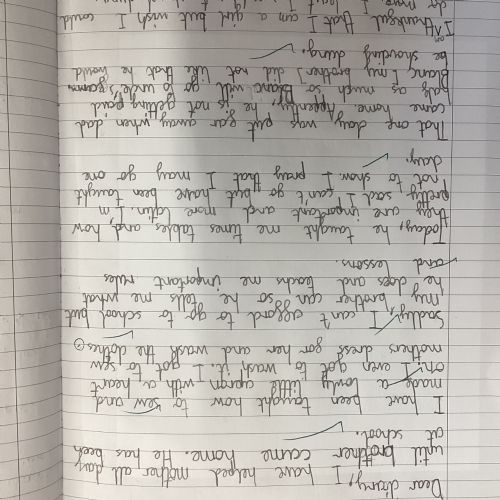 Dear diary, I have helped mother all day
until brother came home. He has been
at school.
I have been taught how to sew and
made a lovely little apron with a heart
on! I even got to wash it. I got to sew
mothers dress for her and wash the clothes
Sadly, I can't afford to go to school but
my brother can so he tells me what
he does and teachs me important rules
and lessons.
Today, he taught me times tables and, how
they are important and more latin. I'm
pretty sad I can't go but have been taught
not to show. I pray that I may go one
day.
That one day was put far away when dad
came home. he is not getting paid
half as much so will go to uncle's
[my brother] did not like that he would
be dung.
I am thankful that I am a girl but I wish I could
do more. I